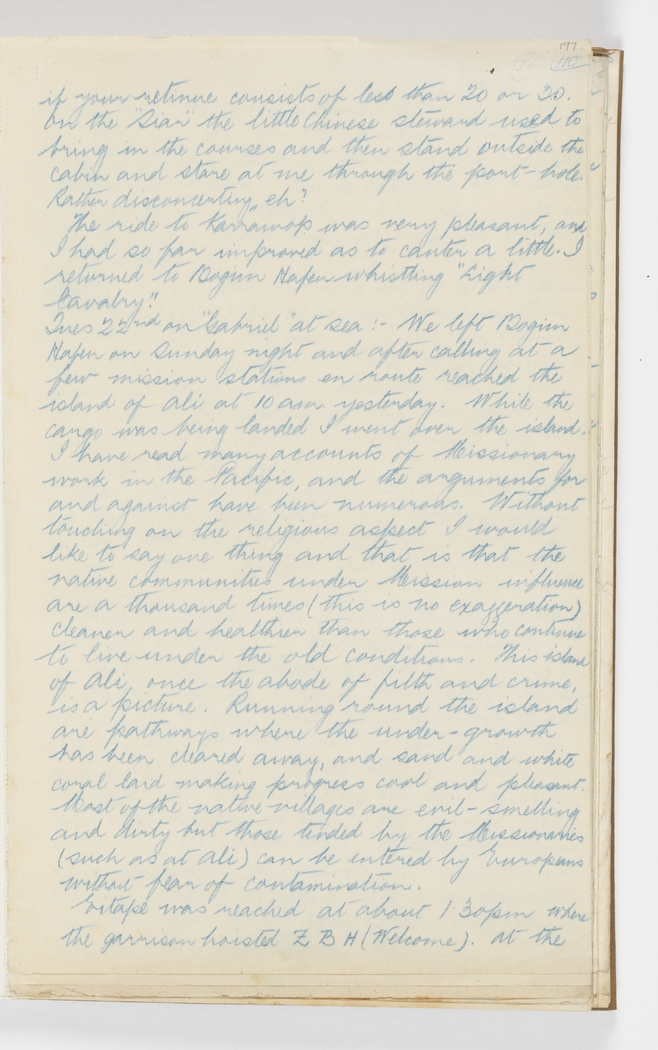 197.
110
if your retinue consists of less than 20 or 30.
On the "Siar" the little Chinese steward used to
bring in the courses and then stand outside the
cabin and stare at me through the port-hole.
Rather disconcerting, eh?
The ride to Karrawop was very pleasant, and
I had so far improved as to canter a little. I
returned to Bogim Hafen whistling "Light
Cavalry."
Tues 22nd on "Gabriel" at sea :- We left Bogim
Hafen on Sunday night and after calling at a
few mission stations en route reached the
island of Ali at 10 am yesterday. While the
cargo was being landed I went over the island.
I have read many accounts of Missionary
work in the Pacific, and the arguments for
and against have been numerous. Without
touching on the religious aspect I would
like to say one thing and that is that the
native communities under Mission influence
are a thousand times (this is no exaggeration)
cleaner and healthier than those who continue
to live under the old conditions. This island
of Ali, once the abode of filth and crime,
is a picture. Running round the island
are pathways where the under-growth
has been cleared away, and sand and white
coral laid making progress cool and pleasant.
Most of the native villages are evil-smelling
and dirty but those tended by the Missionaries
(such as at Ali) can be entered by Europeans
without fear of contamination.
Eitape was reached at about 1.30pm where
the garrison hoisted Z B H (Welcome). At the